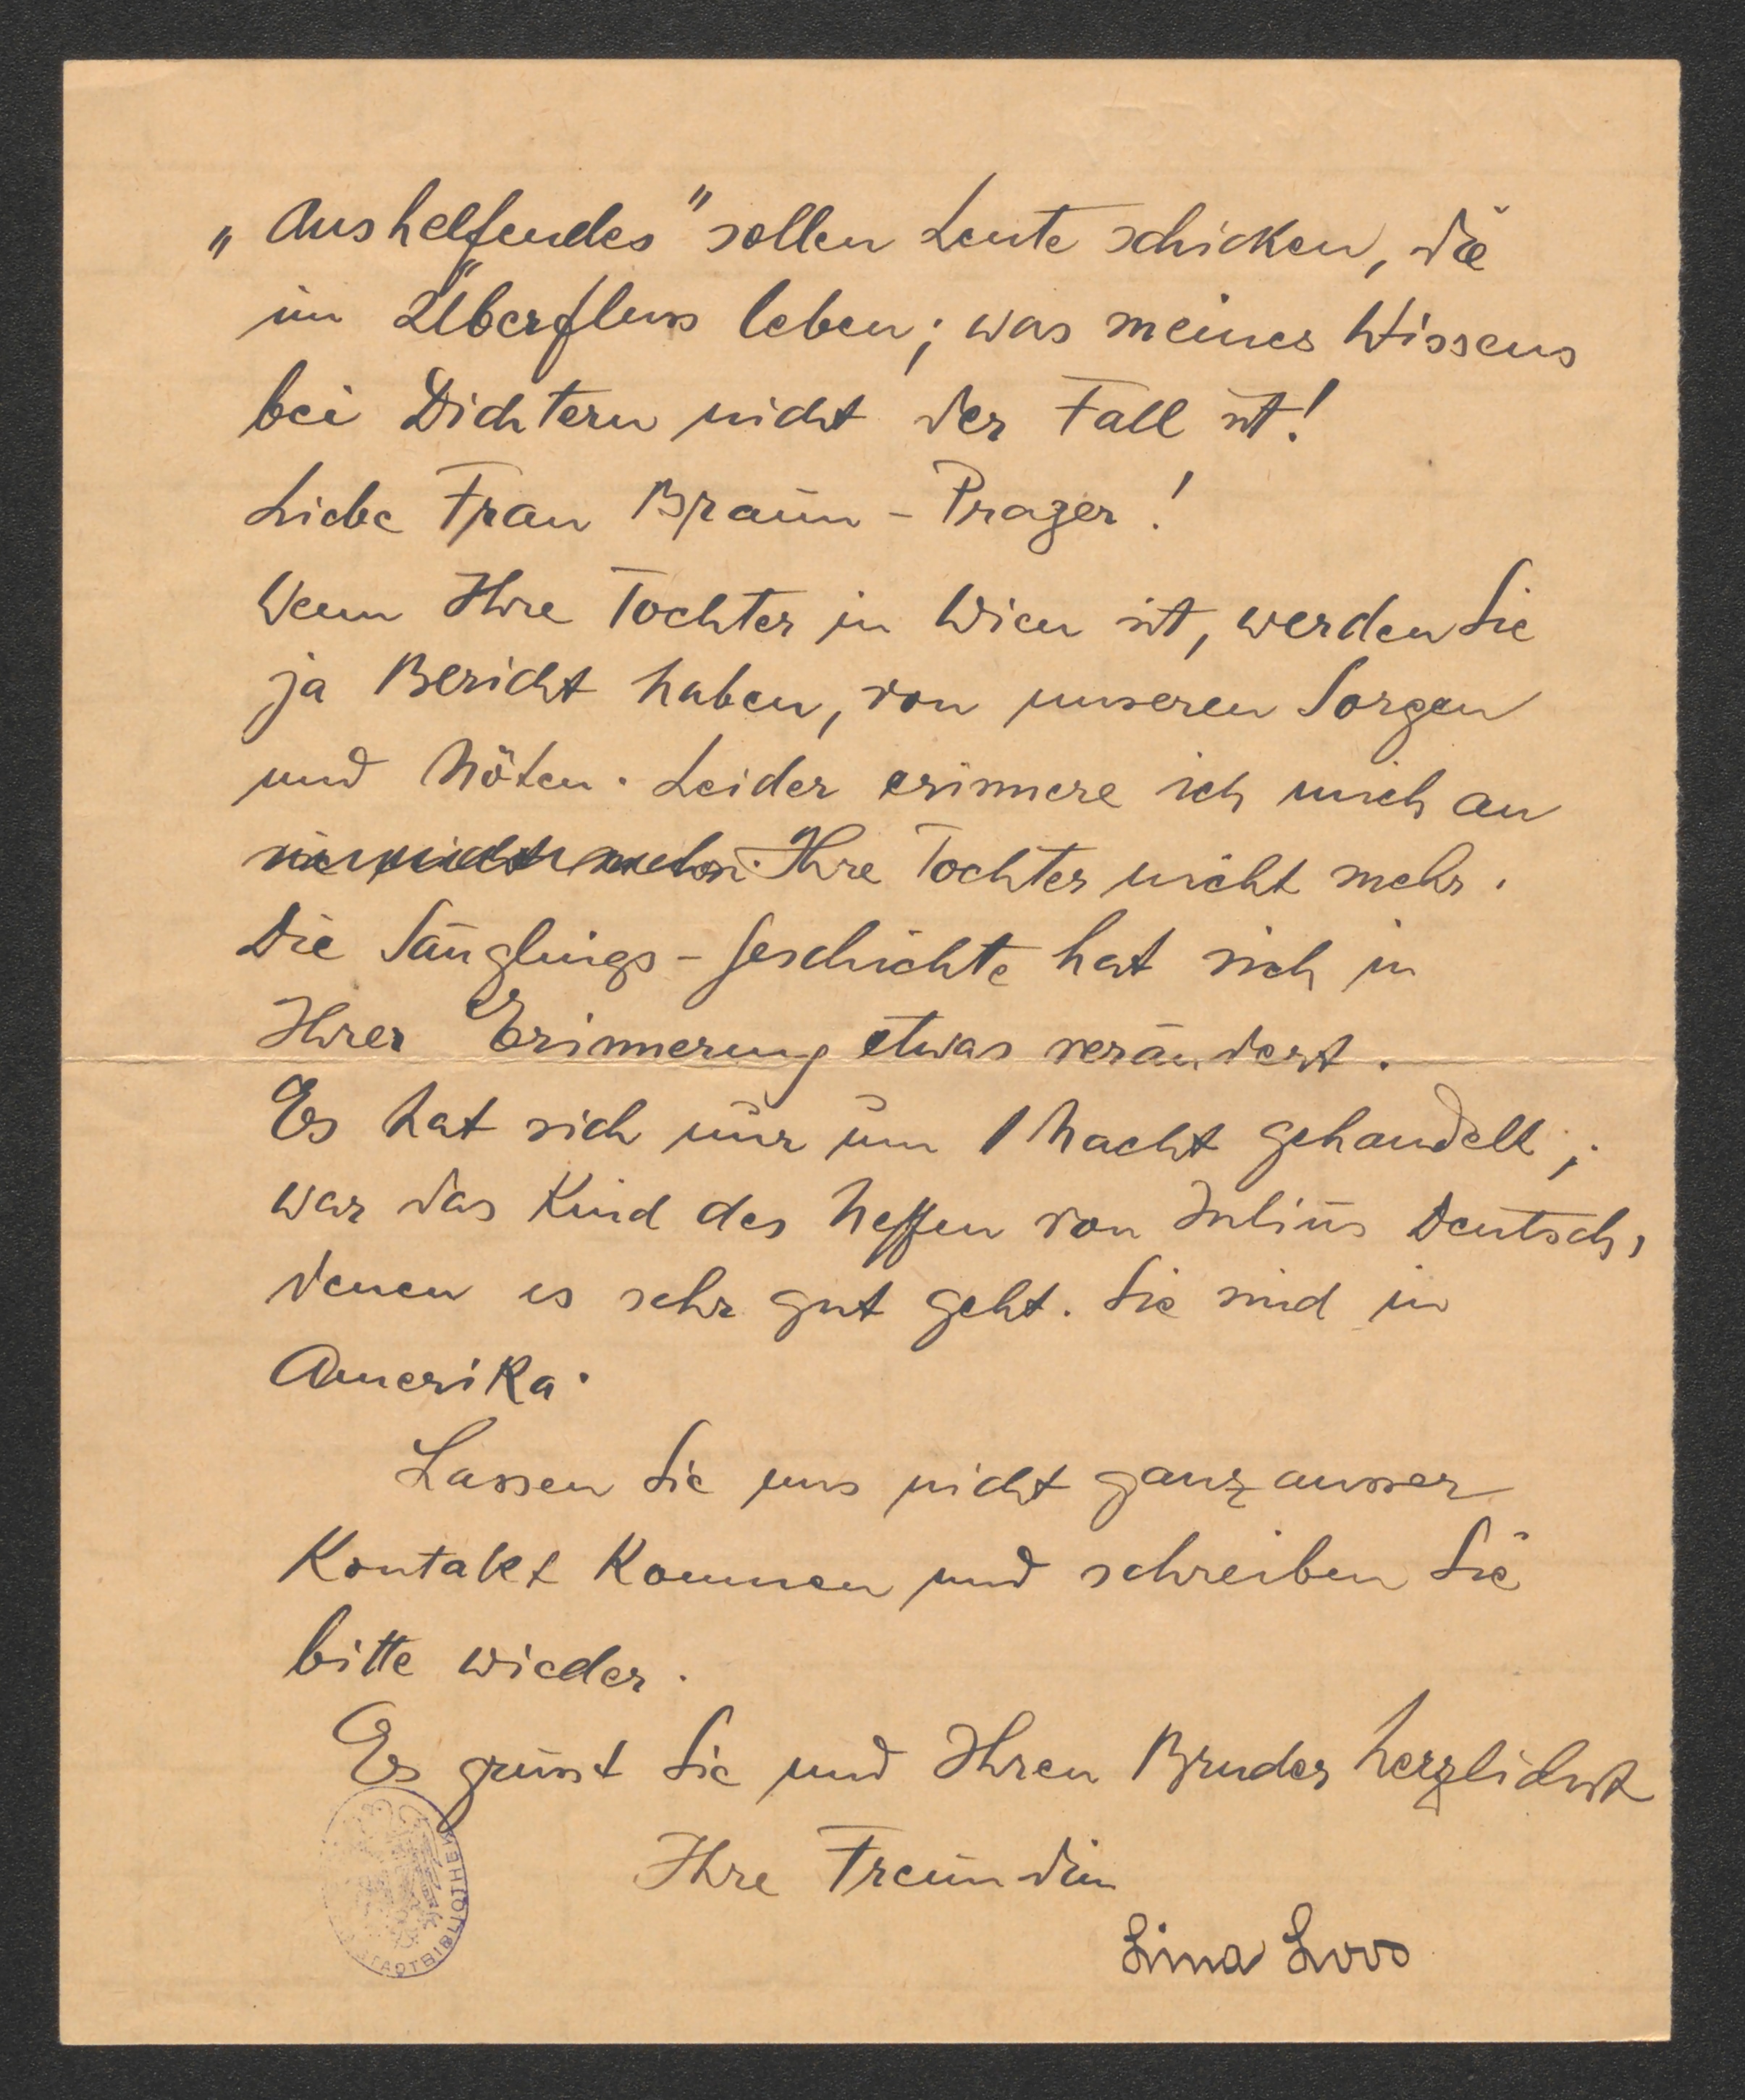 „Aushelfendes" sollen Leute schicken, die
im Überfluss leben; was meines Wissens
bei Dichtern nicht der Fall ist!
Liebe Frau Braun-Prager!
Wenn Ihre Tochter in Wien ist, werden Sie
ja Bericht haben, von unseren Sorgen
und Nöten. Leider erinnere ich mich an
Ihre Tochter nicht mehr.
Die Säuglings-Geschichte hat sich in
Ihrer Erinnerung etwas verändert.
Es hat sich nur um 1 Nacht gehandelt;
war das Kind des Neffen von Julius Deutsch,
denen es sehr gut geht. Sie sind in
Amerika.
Lassen Sie uns nicht ganz ausser
Kontakt kommen und schreiben Sie
bitte wieder.
Es grüsst Sie und Ihren Bruder herzlichst
Ihre Freundin
Lina Loos
STADTBIBLIOTHEK